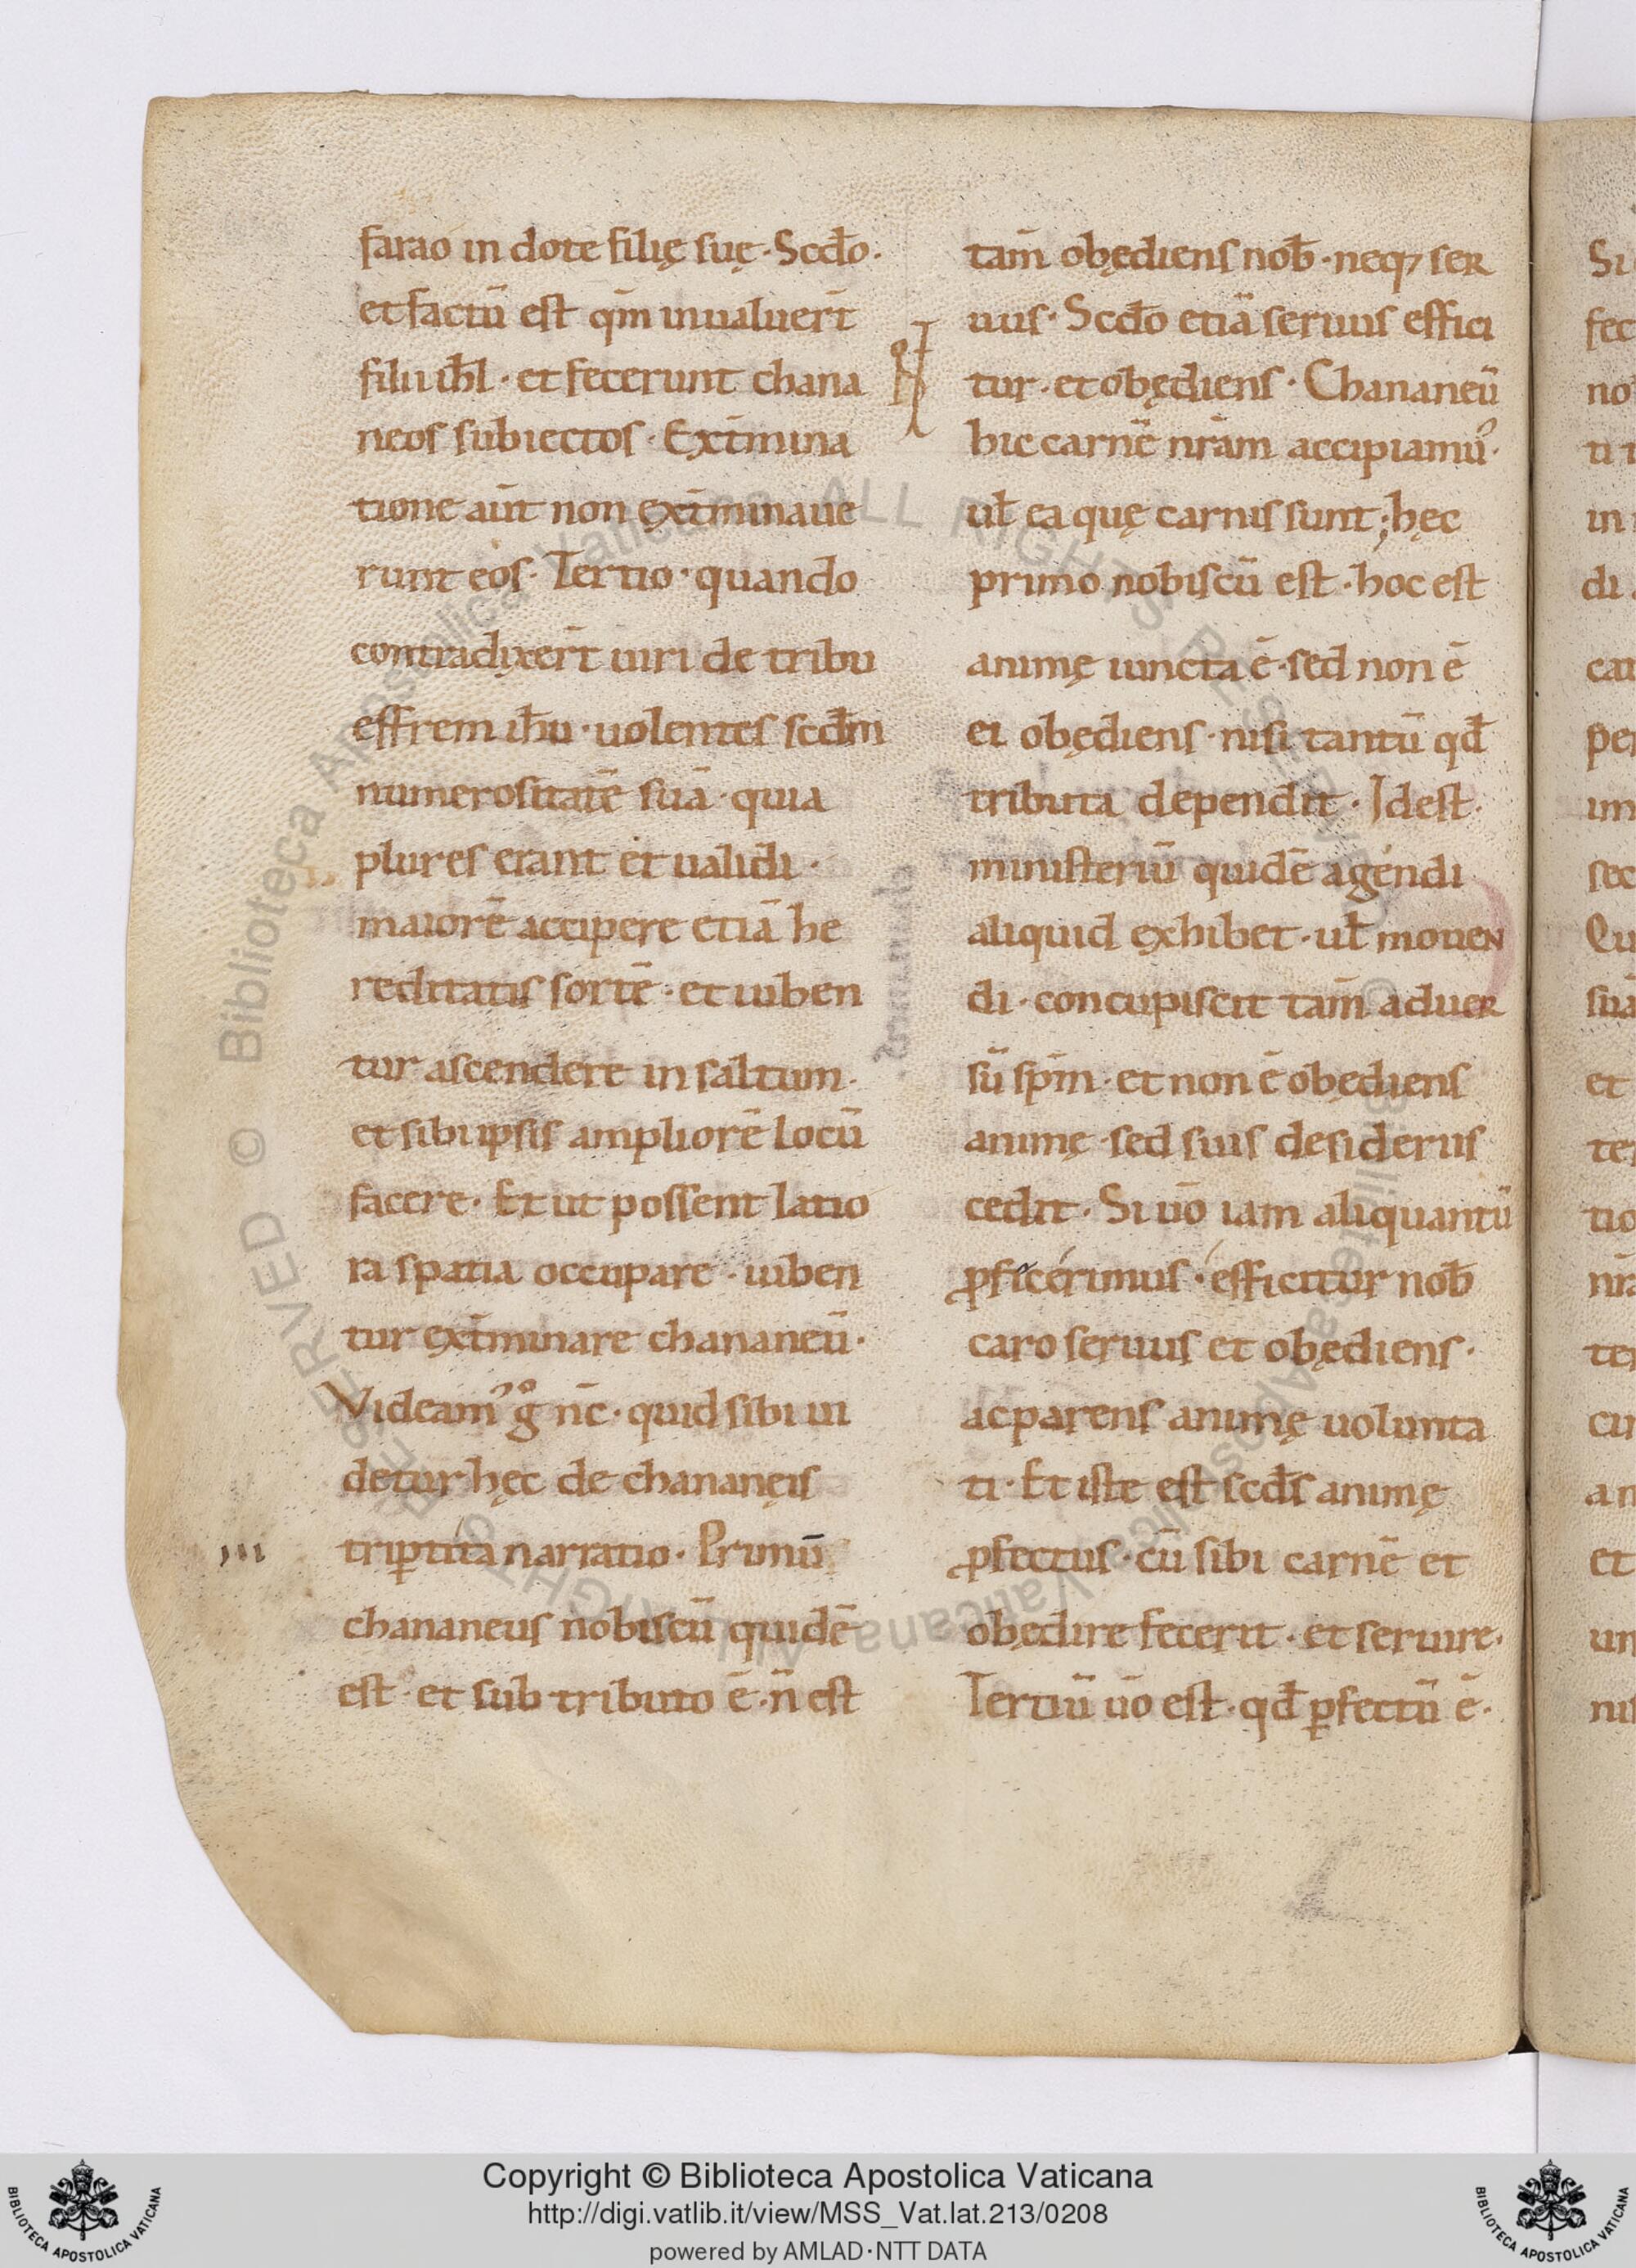 farao in dote filię suę · Scd̄o ·
et factū est qm̄ inualuer̄t
filii isr̄l · et fecerunt chana
neos subiectos · Ext̄mina
tione aūt non ęxt̄minaue
runt eos · Tertio · quando
contradixer̄t uiri de tribu
effrem ih̄u · uolentes scd̄m
numerositatē suā · quia
plures erant et ualidi ·
maiorē accipere etiā he
reditatis sortē · et iuben
tur ascendere in saltum ·
et sibi ipsis ampliorē locū
facere · Et ut possent latio
ra spatia occupare · iuben
tur ext̄minare chananeū ·
Videam᾽ g̊ nc̄ · quid sibi ui
detur hęc de chananęis
iii
trip̱tita narratio · Primū
chananeus nobiscū quidē
est · et sub tributo ē · n̄ est
tam̄ obędiens nob̄ · neq; ser
uus · Scd̄o etiā seruus effici
tur · et obędiens · Chananeū
hic carnē nr̄am accipiam᾽ ·
ul̄ ea quę carnis sunt ; hęc
primo nobiscū est · hoc est
animę iuncta ē · sed non ē
ei obędiens · nisi tantū qd̄
tributa dependit · Idest ·
ministeriū quidē agendi
aliquid exhibet · ul̄ mouen
di · concupiscit tam̄ aduer
sū sp̄m · et non ē obędiens
animę · sed suis desideriis
cedit · Si ūo iam aliquantū
ꝓficerimus · efficitur nob̄
caro seruus et obędiens ·
ac parens animę uolunta
ti · Et iste est scd̄s animę
ꝓfectus · cū sibi carnē et
obędire fecerit · et seruire ·
Tertiū ūo est · qd̄ ꝑfectū ē ·
Si
fec
no
ti
in
di
cau
per
im
sec
Qu
suā
et
ter
tio
nr̄a
ter
cu
an
et
un
nis
© Biblioteca Apostolica Vaticana ALL RIGHTS RESERVED
© Biblioteca Apostolica Vaticana ALL RIGHTS RESERVED
BIBLIOTECA APOSTOLICA VATICANA
Copyright © Biblioteca Apostolica Vaticana
http://digi.vatlib.it/view/MSS_Vat.lat.213/0208
powered by AMLAD·NTT DATA
BIBLIOTECA APOSTOLICA VATICANA